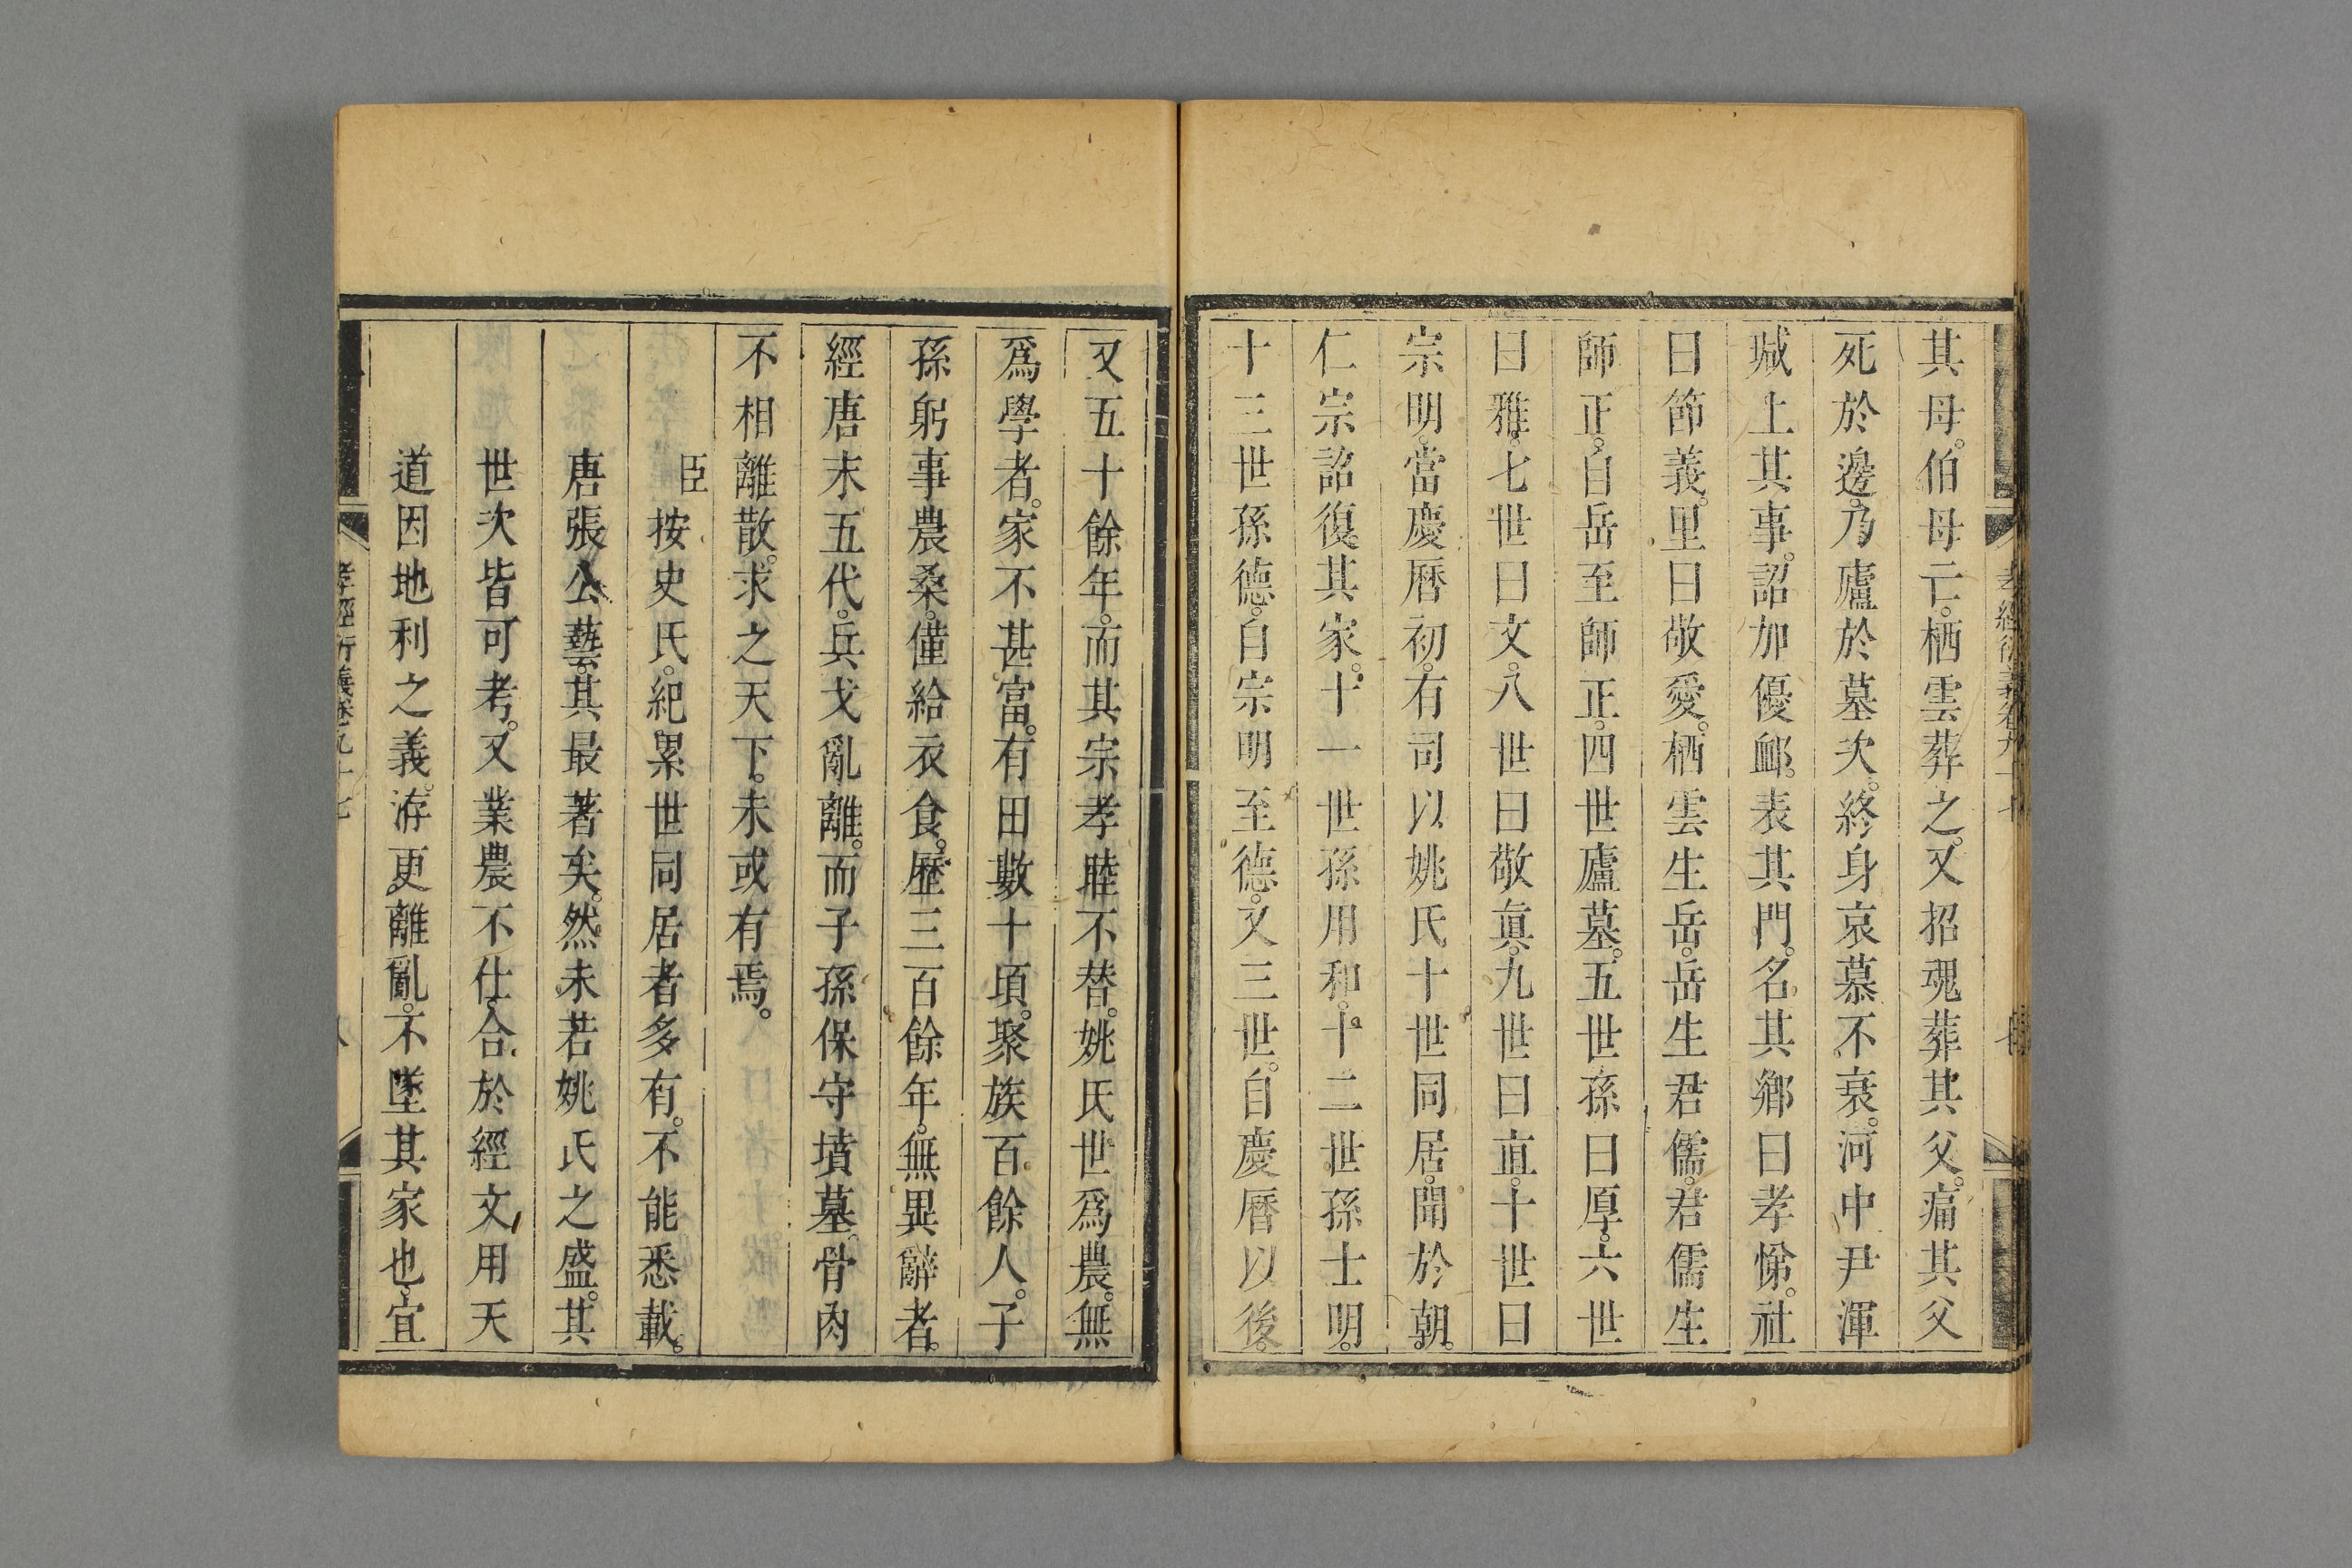 其母。伯母亡。栖雲葬之。又招魂葬其父。痛其父
死於邊。乃廬於墓次。終身哀慕不衰。河中尹渾
瑊上其事。詔加優䘏。表其門。名其鄉曰孝悌。社
曰節義。里曰敬愛。栖雲生岳。岳生君儒。君儒生
師正。自岳至師正。四世廬墓。五世孫曰厚。六世
曰雅。七世曰文。八世曰敬真。九世曰直。十世曰
宗明。當慶曆初。有司以姚氏十世同居。聞於朝。
仁宗詔復其家。十一世孫用和。十二世孫士明。
十三世孫德。自宗明至德。又三世。自慶曆以後。
又五十餘年。而其宗孝睦不替。姚氏世爲農。無
爲學者。家不甚富。有田數十頃。聚族百餘人。子
孫躬事農桑。僅給衣食。歷三百餘年。無異辭者。
經唐末五代。兵戈亂離。而子孫保守墳墓。骨肉
不相離散。求之天下。未或有焉。
臣按史氏。紀累世同居者多有。不能悉載。
唐張公藝。其最著矣。然未若姚氏之盛。其
世次皆可考。又業農不仕。合於經文用天
道因地利之義。游更離亂。不墜其家也。宜
孝經衍義卷九十七